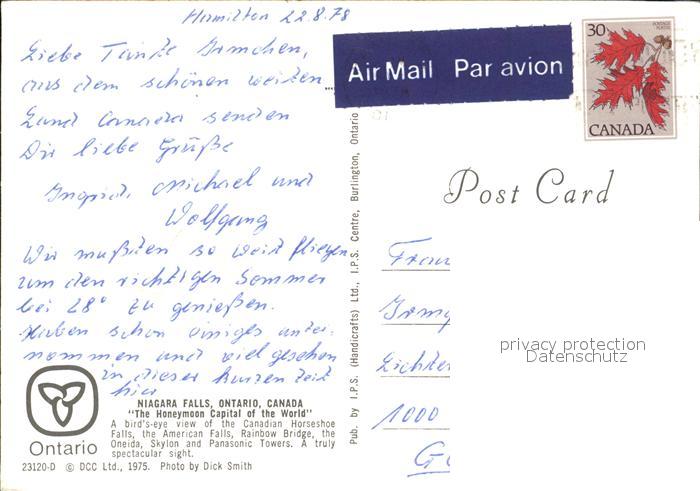 Hamilton 22.8.78
Liebe Tante Irmchen,
aus dem schönen weiten
Land Canada senden
Dir liebe Grüße
Ingrid, Michael und
Wolfgang
Wir mußten so weit fliegen
um den richtigen Sommer
bei 28° zu genießen.
Haben schon einiges unter-
nommen und viel gesehen
in dieser kurzen Zeit
hier
Ontario
NIAGARA FALLS, ONTARIO, CANADA
"The Honeymoon Capital of the World"
A bird's-eye view of the Canadian Horseshoe
Falls, the American Falls, Rainbow Bridge, the
Oneida, Skylon and Panasonic Towers. A truly
spectacular sight.
23120-D © DCC Ltd., 1975. Photo by Dick Smith
Pub. by I.P.S. (Handicrafts) Ltd., I.P.S. Centre, Burlington, Ontario
Air Mail Par avion
30
POSTAGE
POSTES
CANADA
Post Card
Frau
Irmg
Lichter
1000
privacy protection
Datenschutz